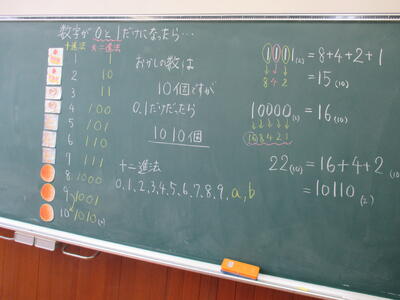 数字が0と1だけになったら…
十進法 二進法
1 1
2 10
3 11
4 100
5 101
6 110
7 111
8 1000
9 1001
10 1010(2)
おかしの数は
10個ですが
0.1だけだったら
1010個
十二進法
0.1.2.3.4.5.6.7.8.9.a,b
1111(2)=8+4+2+1
8 4 2
=15(10)
10000(2)=16(10)
16 8 4 2 1
22(10)=16+4+2(10)
=10110(2)